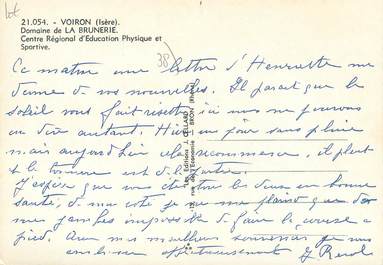 lot
21.054. - VOIRON (Isère).
Domaine de LA BRUNERIE.
Centre Régional d'Education Physique et
Sportive.
38)
Ce matin une lettre d'Henriette me
donne de vos nouvelles. Il parait que le
soleil vous fait ici nous ne pouvons
en dire autant. Hier un jour sans pluie
mais aujourd'hui cela recommence, il pleut
et le tonnerre est de la partie.
J'espère que vous êtes tous les deux en bonne
santé, de mon côté je ne me plains que de
mes jambes impossible de faire la course a
pied. Avec mes meilleurs souvenirs je vous
embrasse affectueusement
Les Editions J. CELLARD
17, rue de l'Economie - BRON (Rhône)